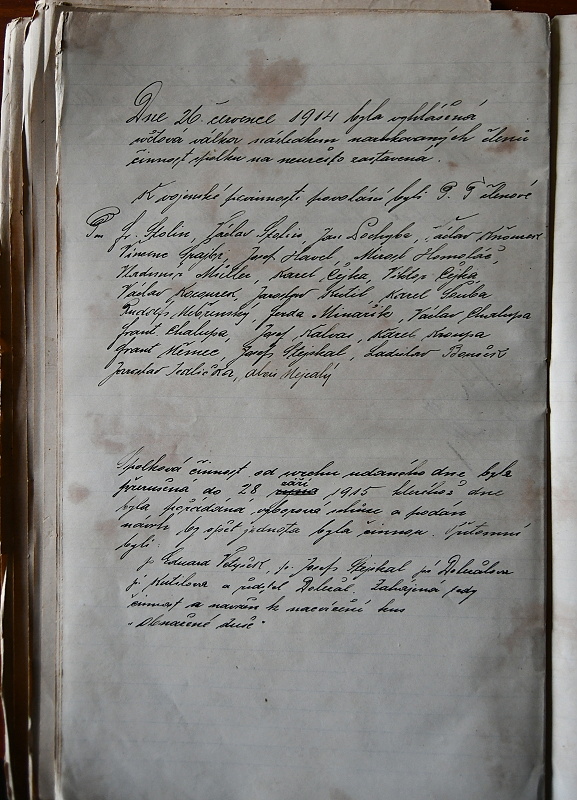 Dne 26. července 1914 byla vyhlášená
světová válka následkem narukovaných členů
činnost spolku na neurčito zastavena.
K vojenské povinnosti povoláni byli P. T. členové
Pn Fr. Stolin, Václav Stolin, Jan Pochyba, Václav
Vincenc Josef Havel, Homoláč,
Vladimír Müller Karel Čejka, Viktor Čejka
Václav Kocourek, Jaroslav Kutil, Karel
Rudolf Jenda Minařík, Václav Chalupa
Frant. Chalupa, Josef Kalvas, Karel Kroupa
Frant Němec, Josef Stejskal, Ladislav
Jaroslav Jedlička, Alois Nejedlý
Spolková činnost od svrchu udaného dne byla
přerušená do 28 září 1915 kteréhož dne
byla pořádaná výborová schůze a podán
návrh by opět jednota byla činnou. Přítomni
byli:
p. Eduard p. Josef Stejskal pí Doležalova
pí Kutilova a ředitel Doležal. Zahájena tedy
činnost a navržen k nacvičení kus